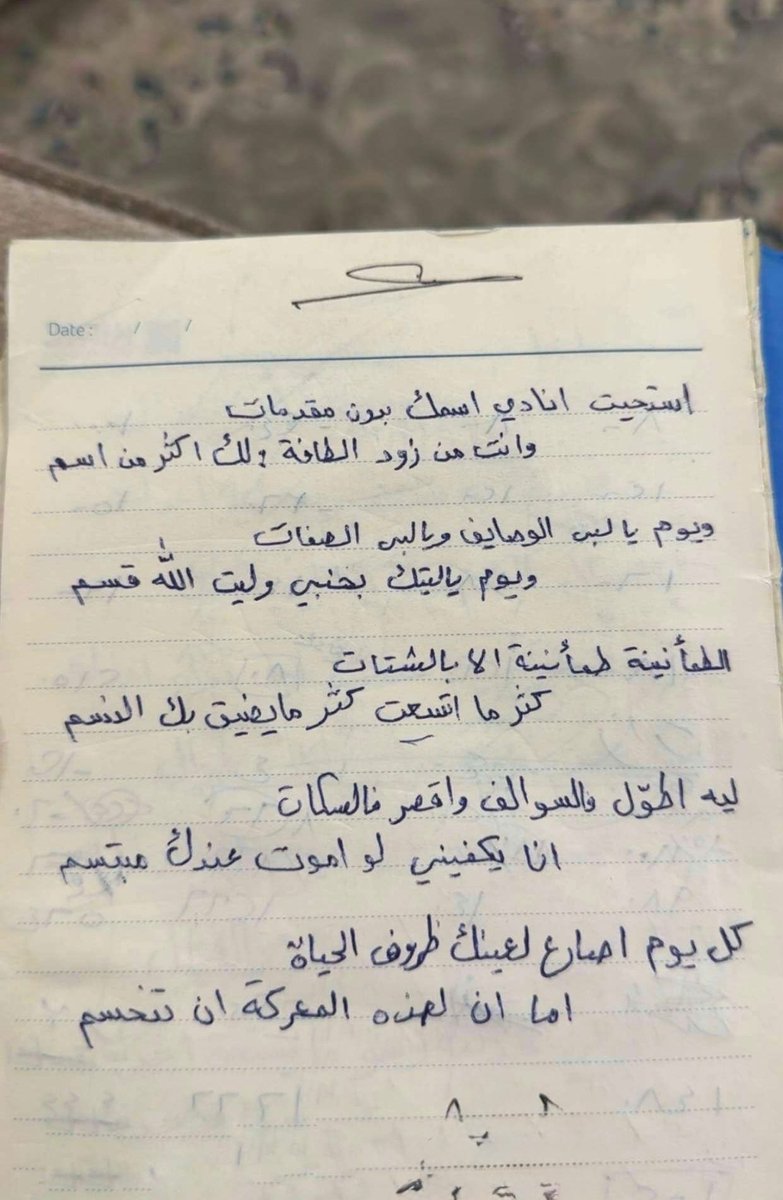 Date: / /
استحيت انادي اسمك بدون مقدمات
وانت من زود الطافة ; لك اكثر من اسم
ويوم يا لبى الوصايف ويالبى الصفات
ويوم ياليتك بجنبي وليت الله قسم
الطمأنينة طمأنينة الا بالشتات
كثر ما اتسعت كثر مايضيق بك النسم
ليه اطوّل فالسوالف واقصر فالسكات
انا يكفيني لو اموت عندك مبتسم
كل يوم اصارع لعينك ظروف الحياة
اما ان لهذه المعركة ان تنحسم